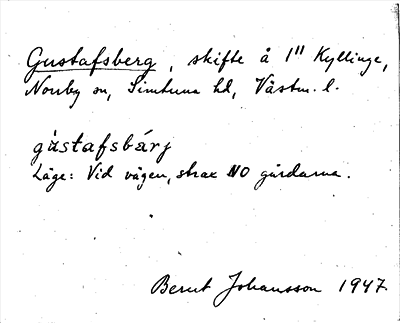 Gustafsberg, skifte å 1" Kyllinge,
Norrby sn, Simtuna hd, Västm. l.
gùstafsbárj
Läge: Vid vägen, strax NO gårdarna.
Bernt Johansson 1947